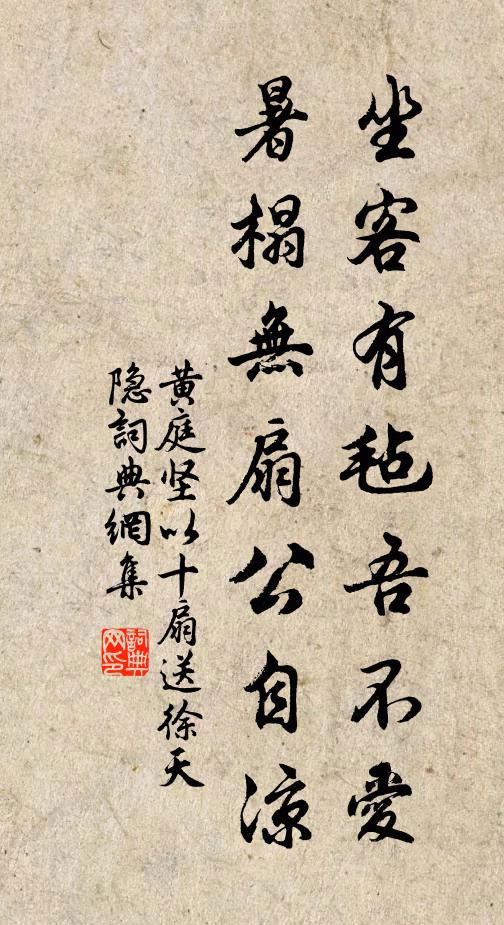 坐客有毡吾不愛
暑榻無扇公自涼
黄庭坚以十扇送徐天
隐詞典網集
詞典网印